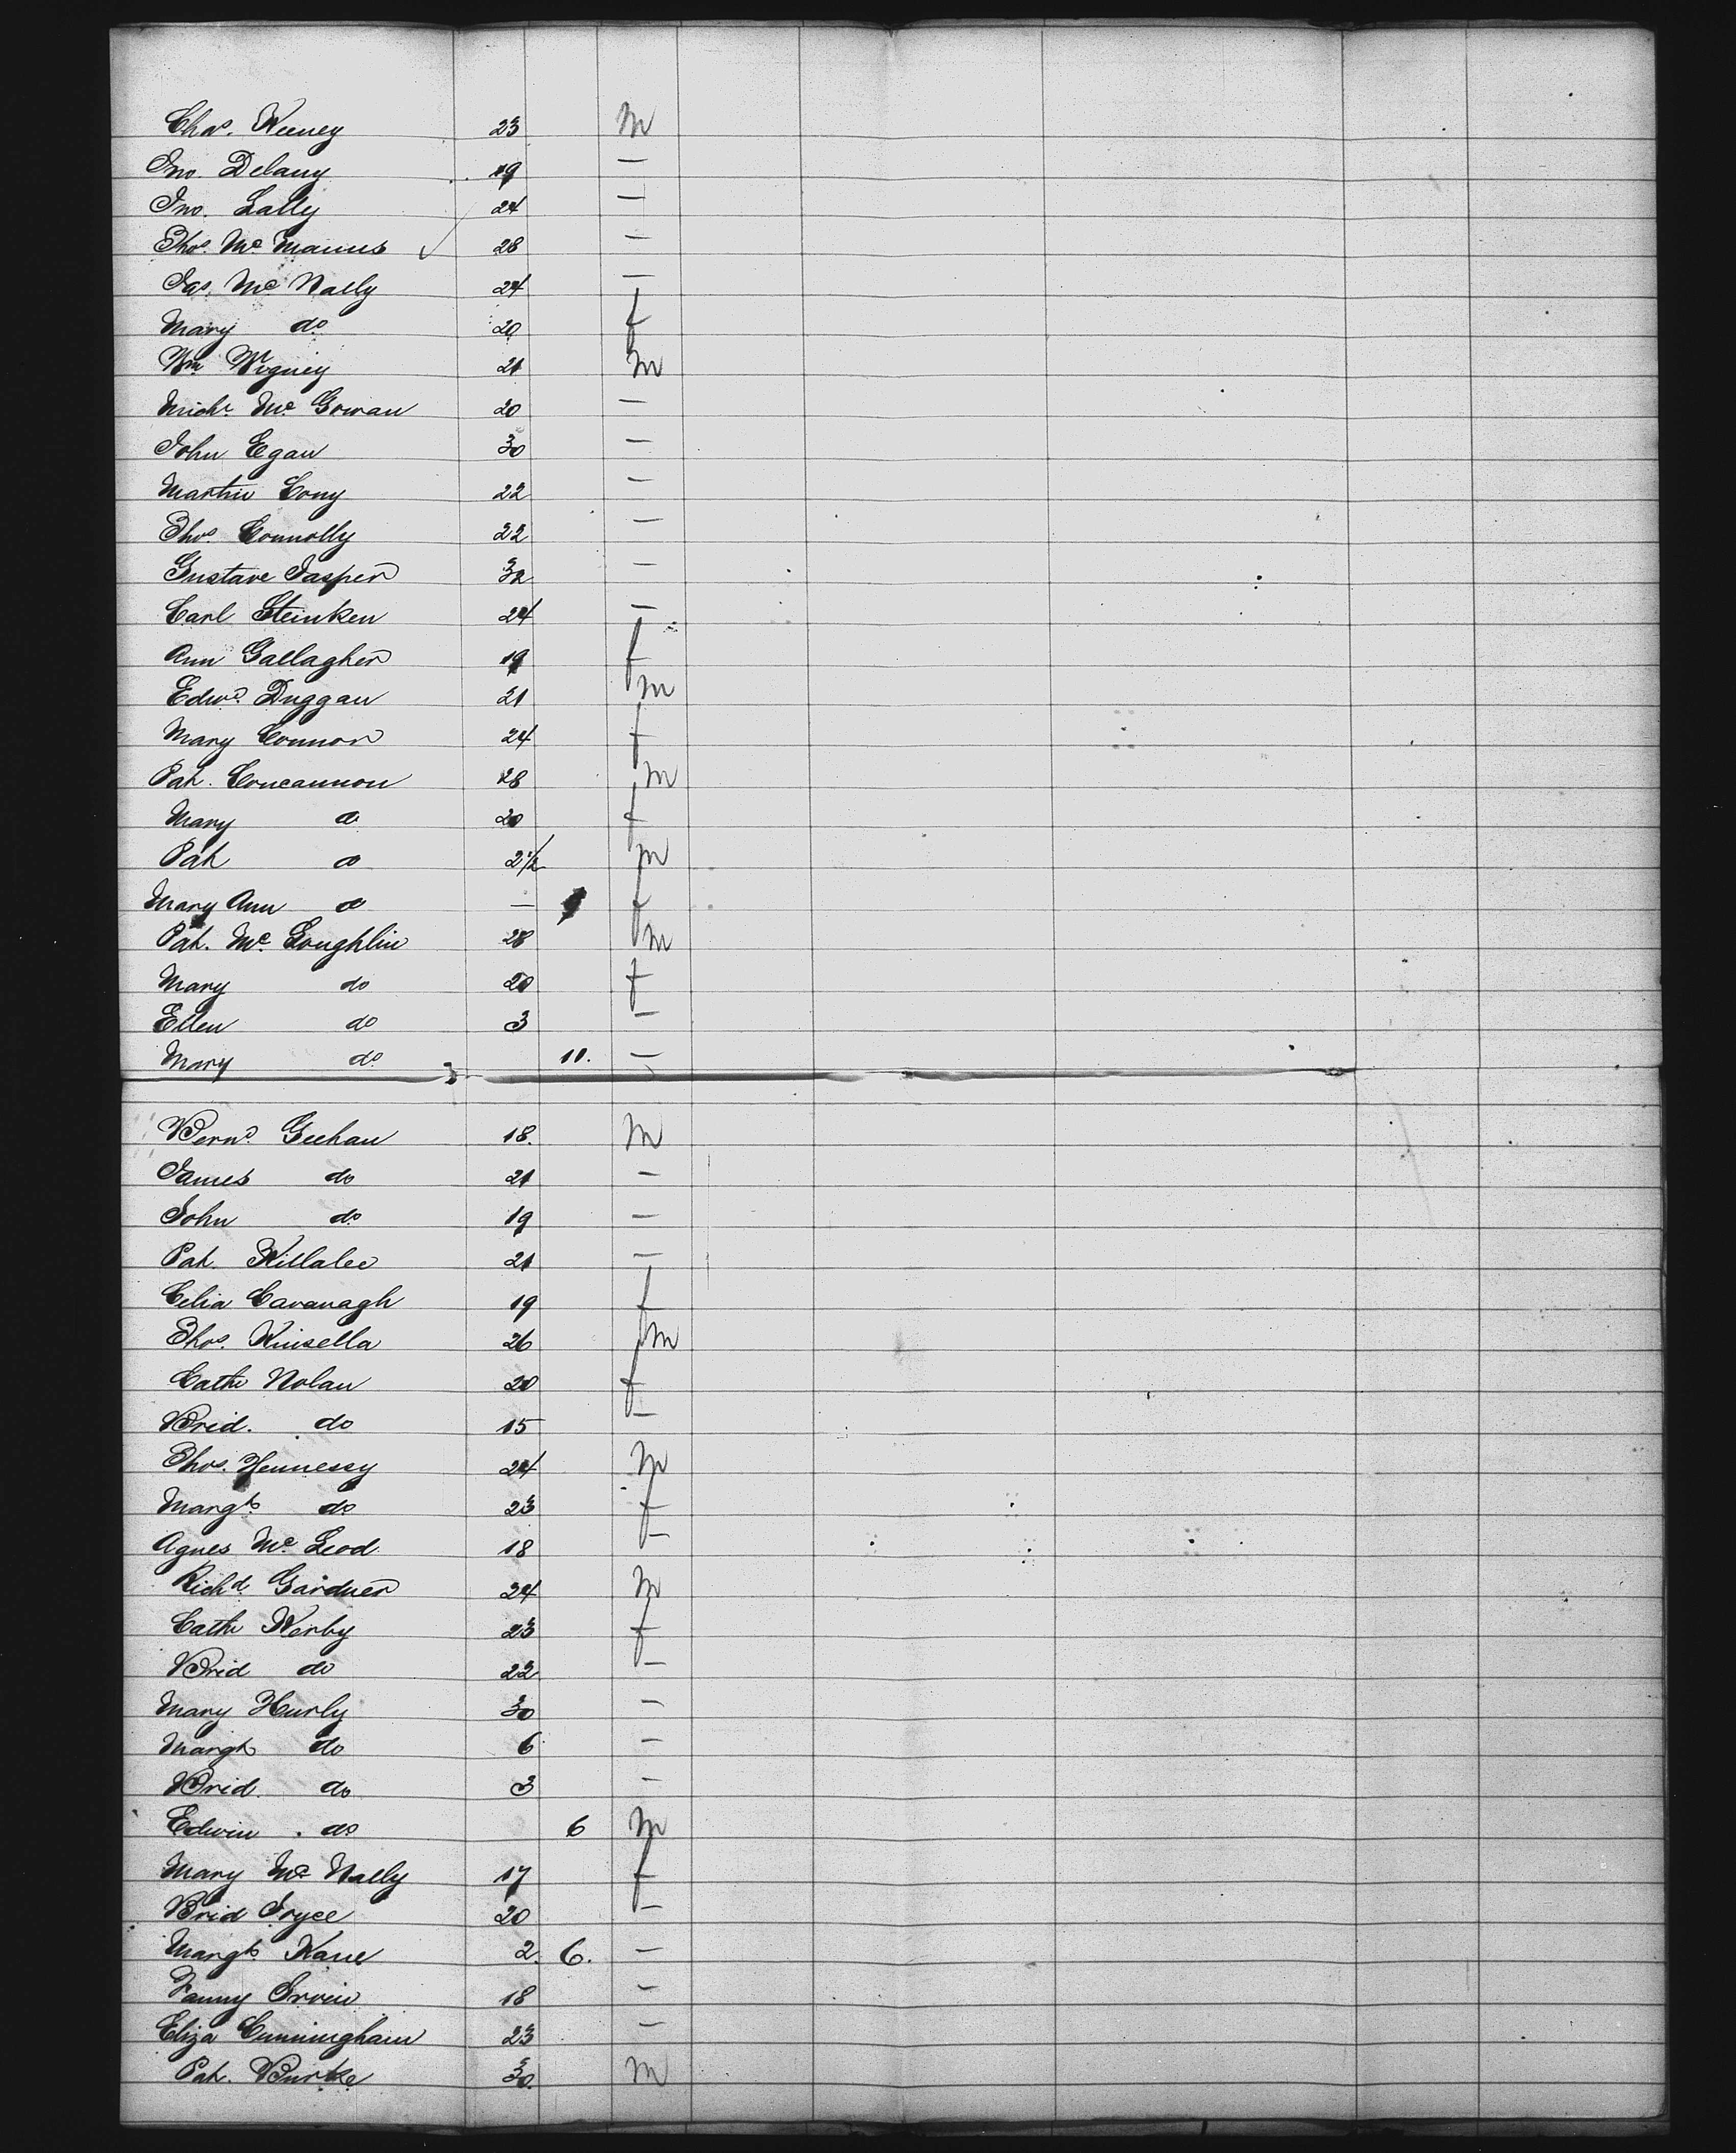 Chas. Keeney 23 M
Jno. Delany 19 —
Jno. Lally 24 —
Thos. Mc Manus ✓ 28 —
Jas. Mc Nally 24 —
Mary do 20 f
Wm 21 M
Michl. Mc Gowan 20 —
John Egan 30 —
Martin Cony 22 —
Thos. Connolly 22 —
Gustave Jasper 32 —
Carl Steinken 24 —
Ann Gallagher 19 f
Edwd. Duggan 21 m
Mary Connor 24 f
Pat. Concannon 28 m
Mary do 20 f
Pat do 2 1/2 m
Mary Ann do — f
Pat. Mc Loughlin 28 m
Mary do 20 f
Ellen do 3 —
Mary do 11. —
Bernd. Geehan 18. M
James do 21 —
John do 19 —
Pat. Killalee 21 —
Celia Cavanagh 19 f
Thos. Kinsella 26 m
Cathe Nolan 20 f
Brid. do 15 —
Thos. Hennessy 24 M
Margt. do 23 f
Agnes Mc Leod 18 —
Richd. Gardner 24 M
Cathe Kerby 23 f
Brid do 22 —
Mary Hurly 30 —
Margt do 6 —
Brid. do 3 —
Edwin do 6 M
Mary Mc Nally 17 f
Brid Joyce 20 —
Margt. Kane 2. 6. —
Fanny Irvin 18 —
Eliza Cunningham 23 —
Pat. Burke 30. M